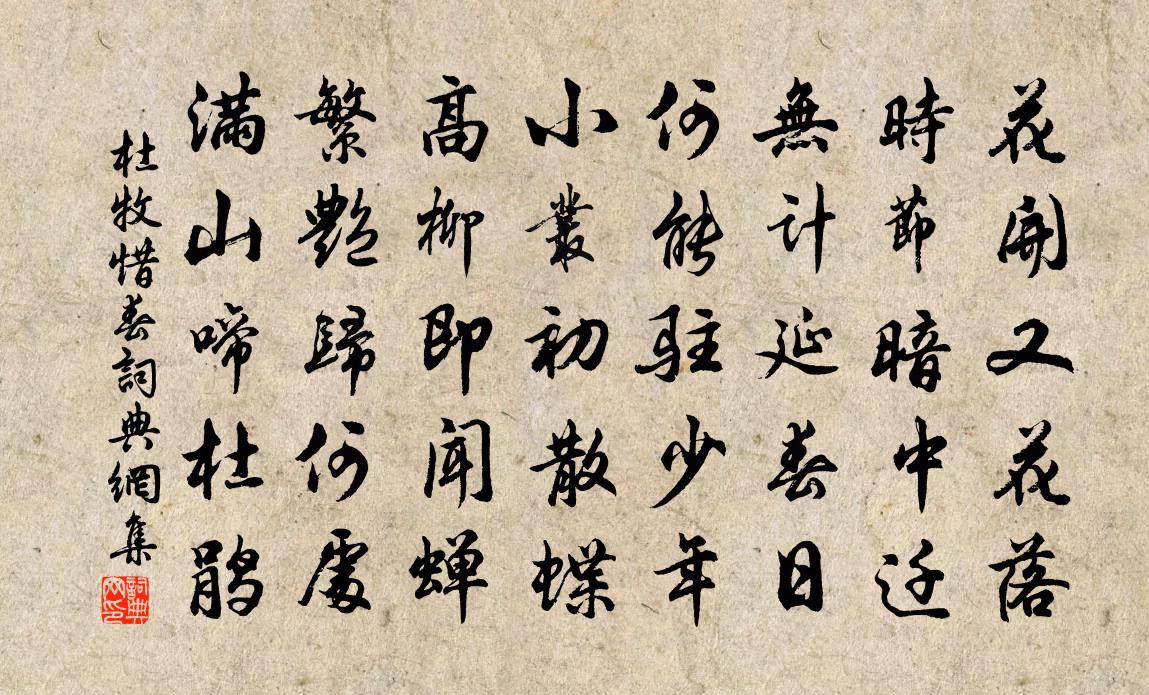 花開又花落
時節暗中迁
無計延春日
何能駐少年
小叢初散蝶
高柳即聞蝉
繁艷歸何處
滿山啼杜鵑
杜牧惜春詞典網集
詞典网印